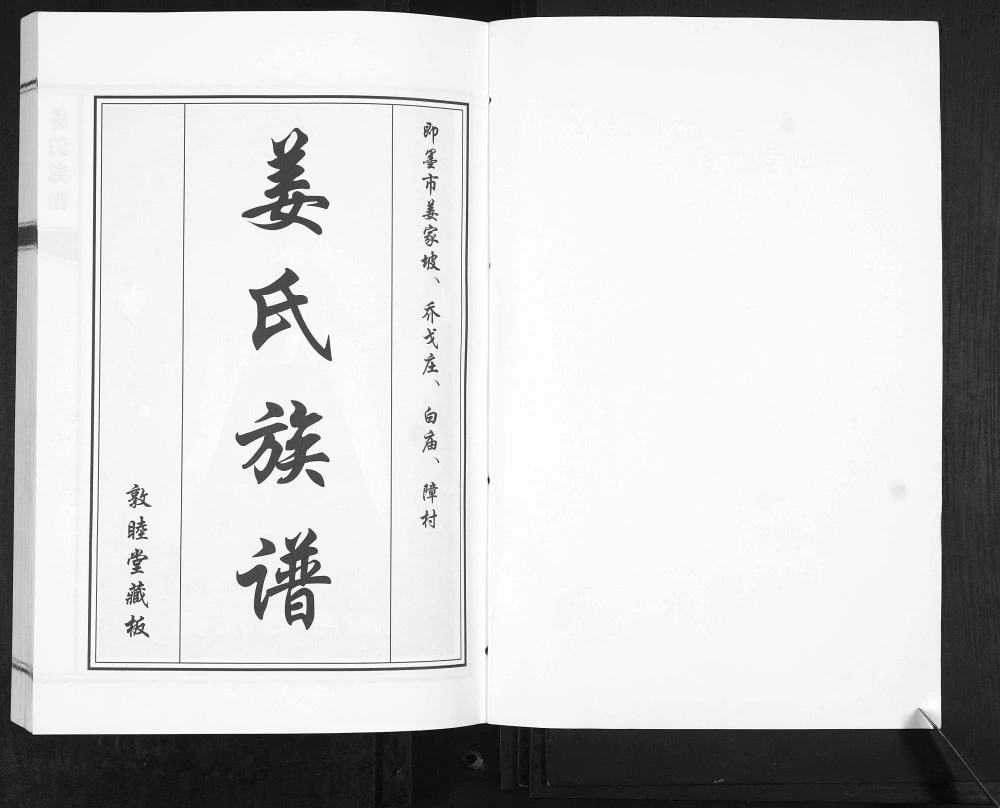 即墨市姜家坡、乔戈庄、白庙、障村
姜氏族谱
敦睦堂藏板
姜氏族谱